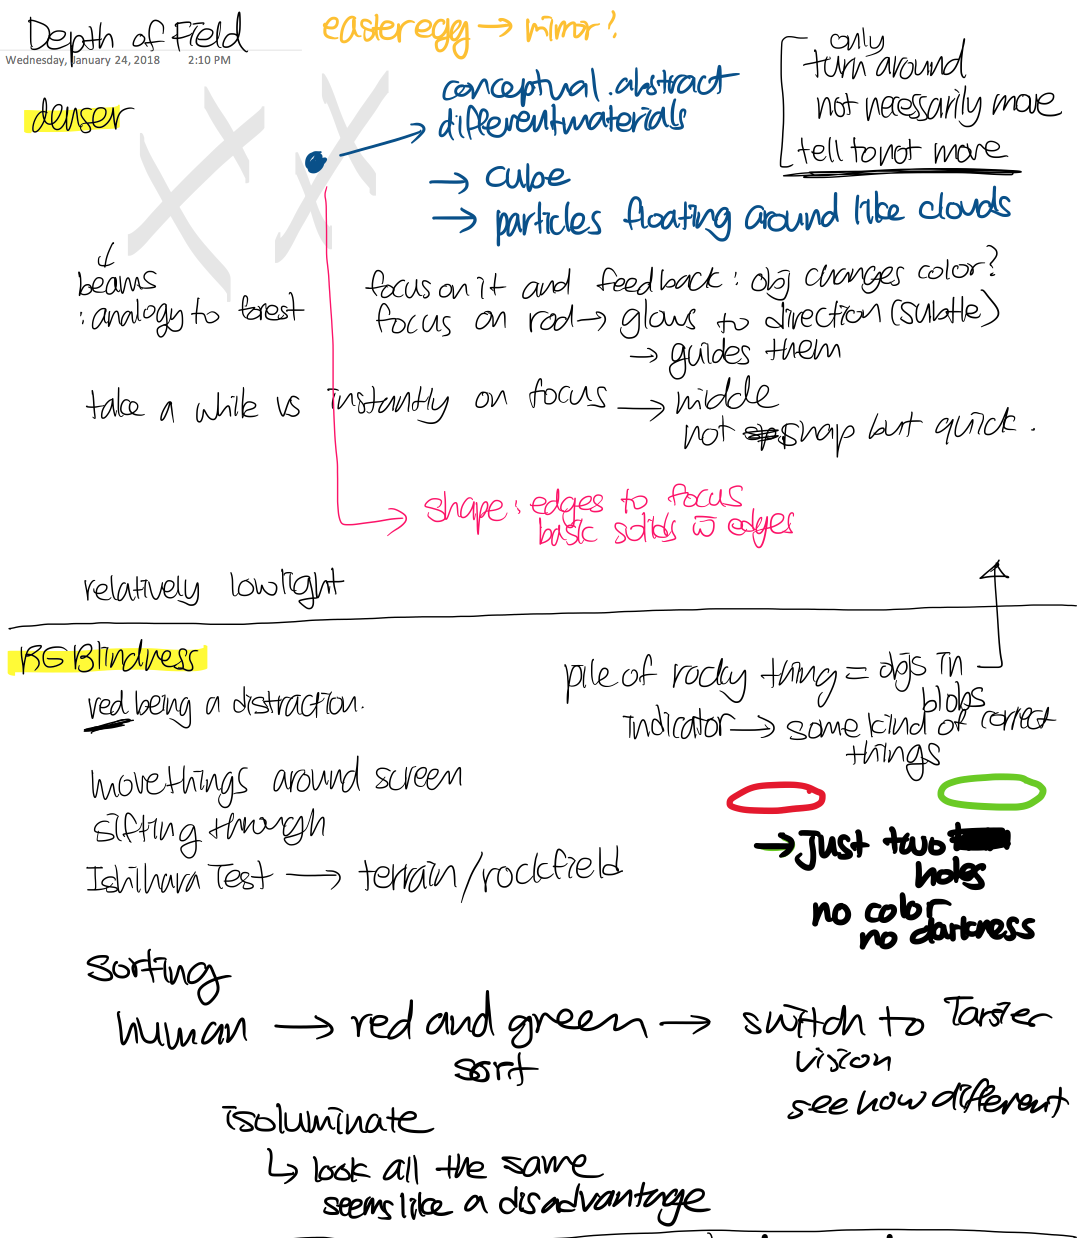 Depth of Field
Wednesday, January 24, 2018 2:10 PM
easter egg → mirror?
only
turn around
not necessarily move
tell to not move
denser
conceptual. abstract
different materials
→ cube
→ particles floating around like clouds
beams
: analogy to forest
focus on it and feedback : obj changes color?
focus on rod → glows to direction (subtle)
→ guides them
take a while vs instantly on focus → middle
not snap but quick.
shape : edges to focus
basic solids w edges
relatively low light
RG Blindness
red being a distraction.
pile of rocky thing = objs in
blobs
indicator → some kind of correct
things
move things around screen
sifting through
Ishihara Test → terrain/rockfield
→ Just two
holes
no color
no darkness
sorting
human → red and green → switch to Tarsier
sort
vision
see how different
isoluminate
↳ look all the same
seems like a disadvantage